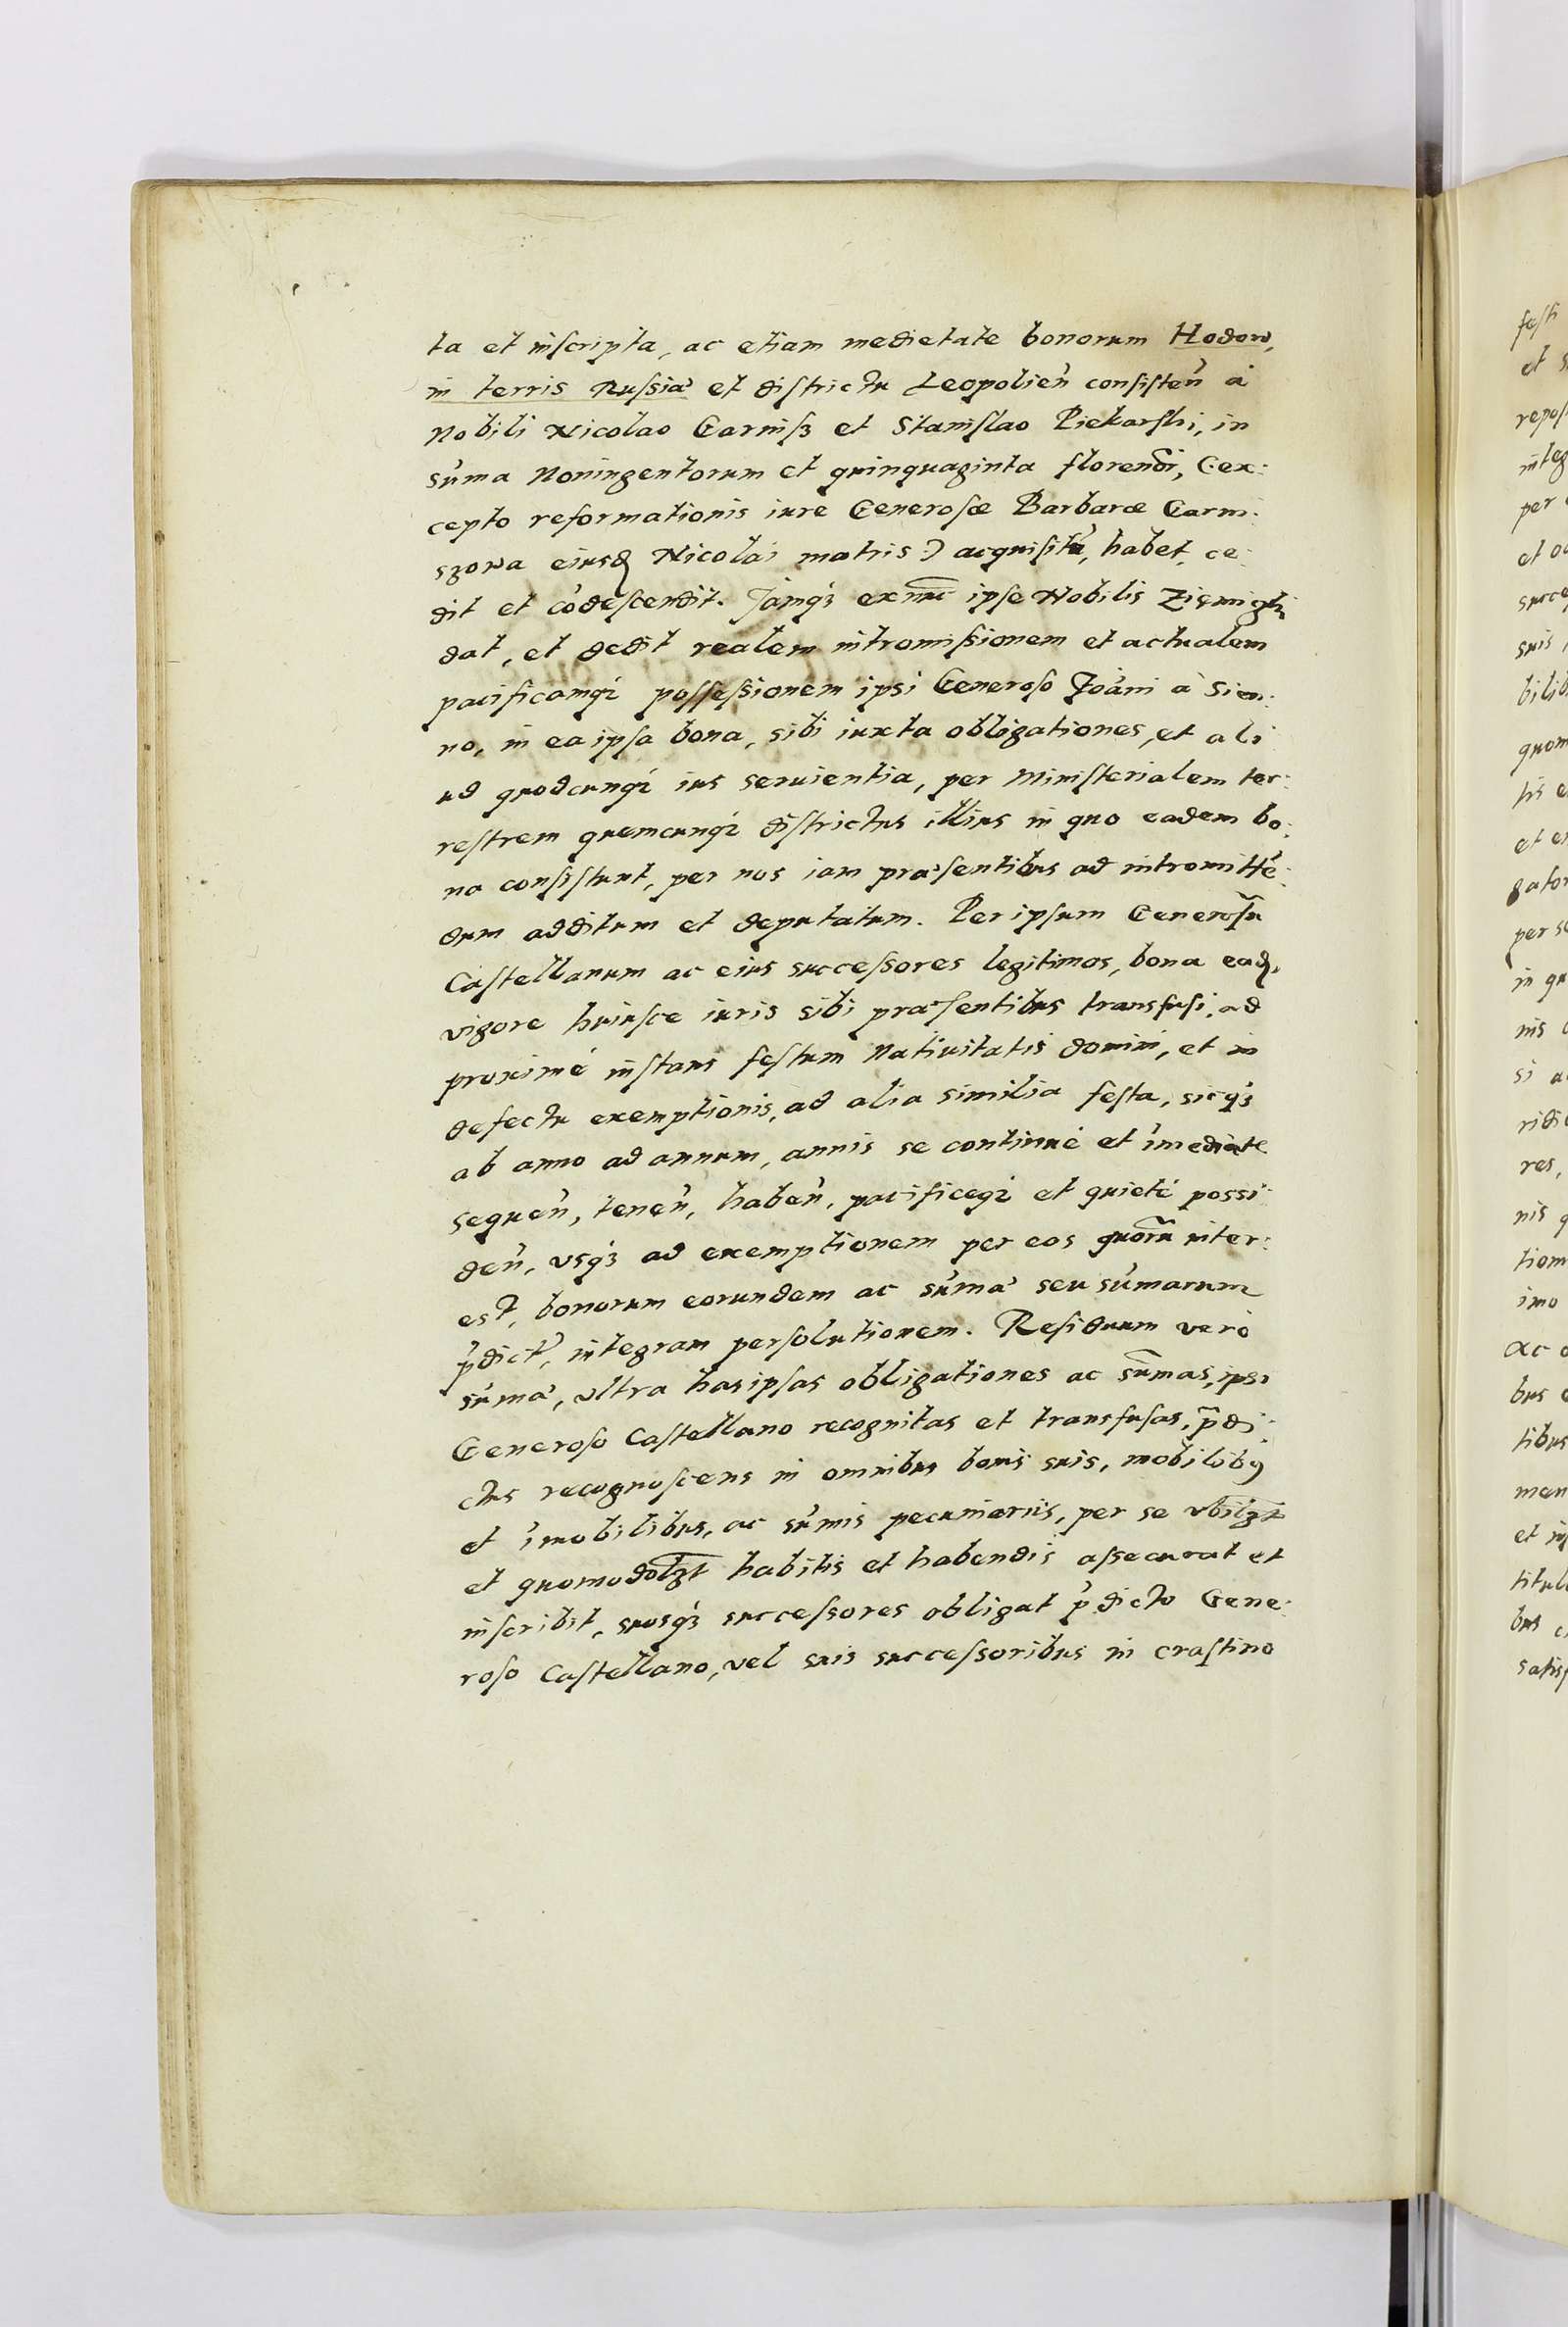 ta et inscripta, ac etiam medietate bonorum Hodow,
in terris Russiæ et districtu Leopolien̄ consisten̄ à
Nobili Nicolao Carnisz et Stanislao Piekarski, in
sūma Noningentorum et quinquaginta floren̄, (:ex:
cepto reformationis iure Generosæ Barbaræ Carni:
szowa eiusd Nicolai matris:) acquisitū, habet, ce:
dit et cōdescendit. Iamq3 exnuc ipse Nobilis
dat, et dedit realem intromissionem et actualem
pacificamq3 possessionem ipsi Generoso Joāni à Sien:
no, in ea ipsa bona, sibi iuxta obligationes, et ali
ud quodcunq3 ius seruientia, per Ministerialem ter:
restrem quemcunq3 districtus illius in quo eadem bo:
na consistunt, per nos iam præsentibus ad intromittē:
dum additum et deputatum. Per ipsum Generosū
Castellanum ac eius successores legitimos, bona ead,
vigore huiusce iuris sibi præsentibus transfusi, ad
proximè instans festum Natiuitatis domini, et in
defectu exemptionis, ad alia similia festa, sicq3
ab anno ad annum, annis se continuè et īmediate
sequen̄, tenen̄, haben̄, pacificeq3 et quietè possi:
den̄, vsq3 ad exemptionem per eos quorū inter:
est, bonorum eorundem ac sūmæ seu sūmarum
p̄dict, integram persolutionem. Residuum verò
sūmæ, vltra has ipsas obligationes ac sūmas, ipsi
Generoso Castellano recognitas et transfusas, p̄di:
ctus recognoscens in omnibus bonis suis, mobilib9
et īmobilibus, ac sūmis pecuniariis, per se vbilzt
et quomodolzt habitis et habendis assecurat et
inscribit, suosq3 successores obligat p̄dicto Gene:
roso Castellano, vel suis successoribus in crastino